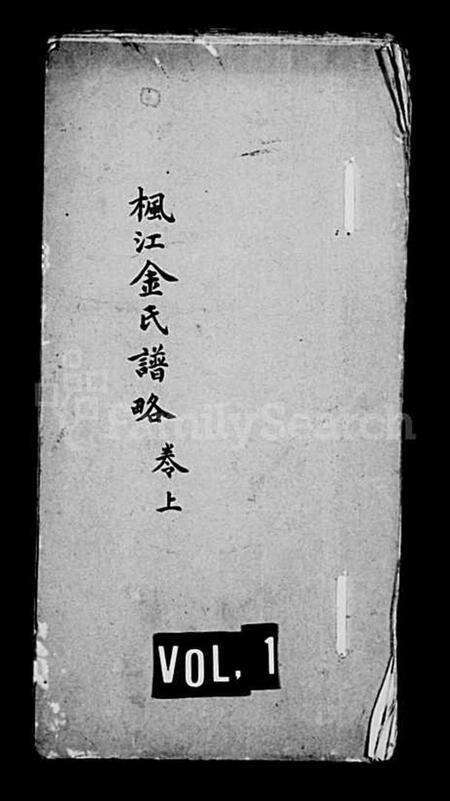 楓江金氏譜略
卷上
VOL. 1
FamilySearch